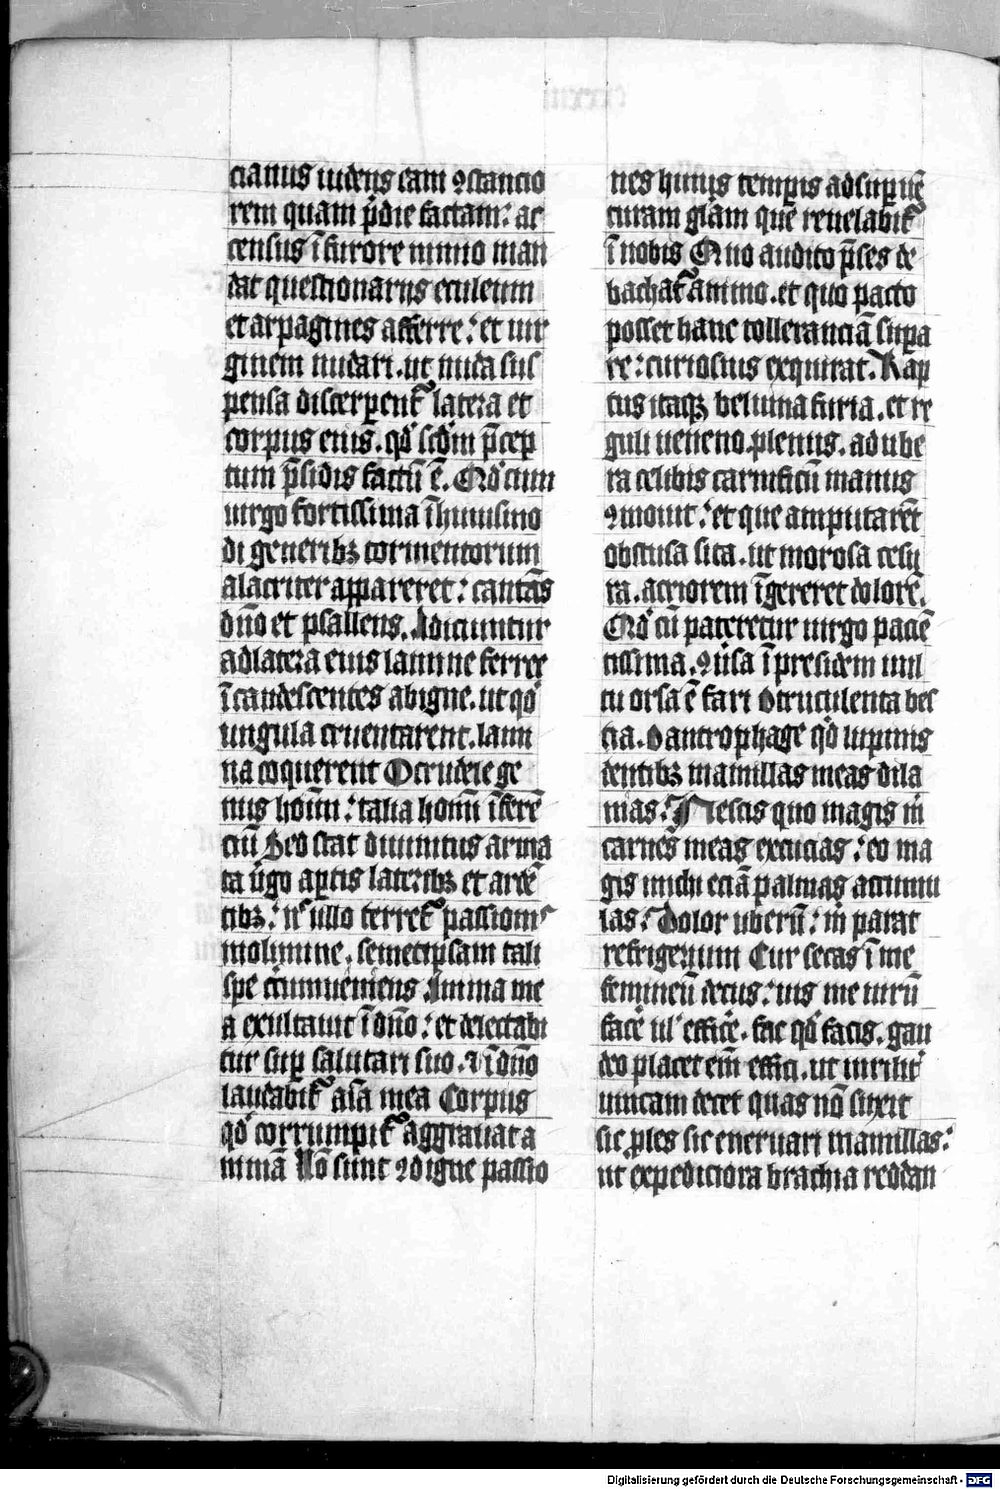 cianus uidens eam ꝯstancio
rem quam p̄die factam: ac
census ī furore nimio man
dat questionarijs eculeum
et arpagines afferre: et uir
ginem nudari. ut nuda sus
pensa discerpent᷑ latera et
corpus eius. qd̛ scd̄m p̄cep
tum p̄sidis factū ē. Qd̛ cum
uirgo fortissima ī huiusmo
di generibꝫ tormentorum
alacriter appareret: cantās
dn̄o et psallens. Adiciuntur
ad latera eius lamine ferree
īcandescentes ab igne. ut qd̛
ungula cruentarent. lami
na coquerent O crudele ge
nus hoīm: talia hoīm īferē
ciū Sed stat diuinitus arma
ta u̾go ap̱tis lateribꝫ et arden̄
tibꝫ: nͨ illo terret᷑ passionis
molimine. semetipsam tali
spe circumueniens Anima me
a exultauit ī dn̄o: et delectabi
tur sup̱ salutari suo. ⁊ ī dn̄o
laudabit᷑ aīa mea Corpus
qd̛ corrumpit᷑ aggrauat a
nimā Nō sunt ꝯdigne passio
nes huius temp̱is ad sup̱uē
turam gl̄am que reuelabit᷑
ī nobis Quo audito p̄ses de
bachat᷑ animo. et quo pacto
posset hanc tolleranciā sup̱a
re: curiosius exquirat. Rap
tus itaqꝫ beluina furia. et re
guli ueneno plenus. ad ube
ra celibis carnificū manus
ꝯmouit: et que amputarēt
obtusa sica. ut morosa cesu
ra. acriorem īgereret dolorē.
Qd̛ cū pateretur uirgo pacie̅
tissima. ꝯuersa ī presidem uul
tu orsa ē fari O truculenta bes
tia. O antrophage qd̛ lupinis
dentibꝫ mamillas meas dila
nias: Nescis quo magis in
carnes meas exciuas: eo ma
gis michi eciā palmas accumu
las: Dolor uberū: m̄ parat
refrigerium Cur secas ī me
femineū decus: uis me uirū
facē ul᷑ efficē. fac qd̛ facis. gau
deo placet em̄ effici. ut uirilit̛
uincam decet quas nō suxit
sic p̱les sic eneruari mamillas:
ut expediciora brachia reddan
Digitalisierung gefördert durch die Deutsche Forschungsgemeinschaft - DFG